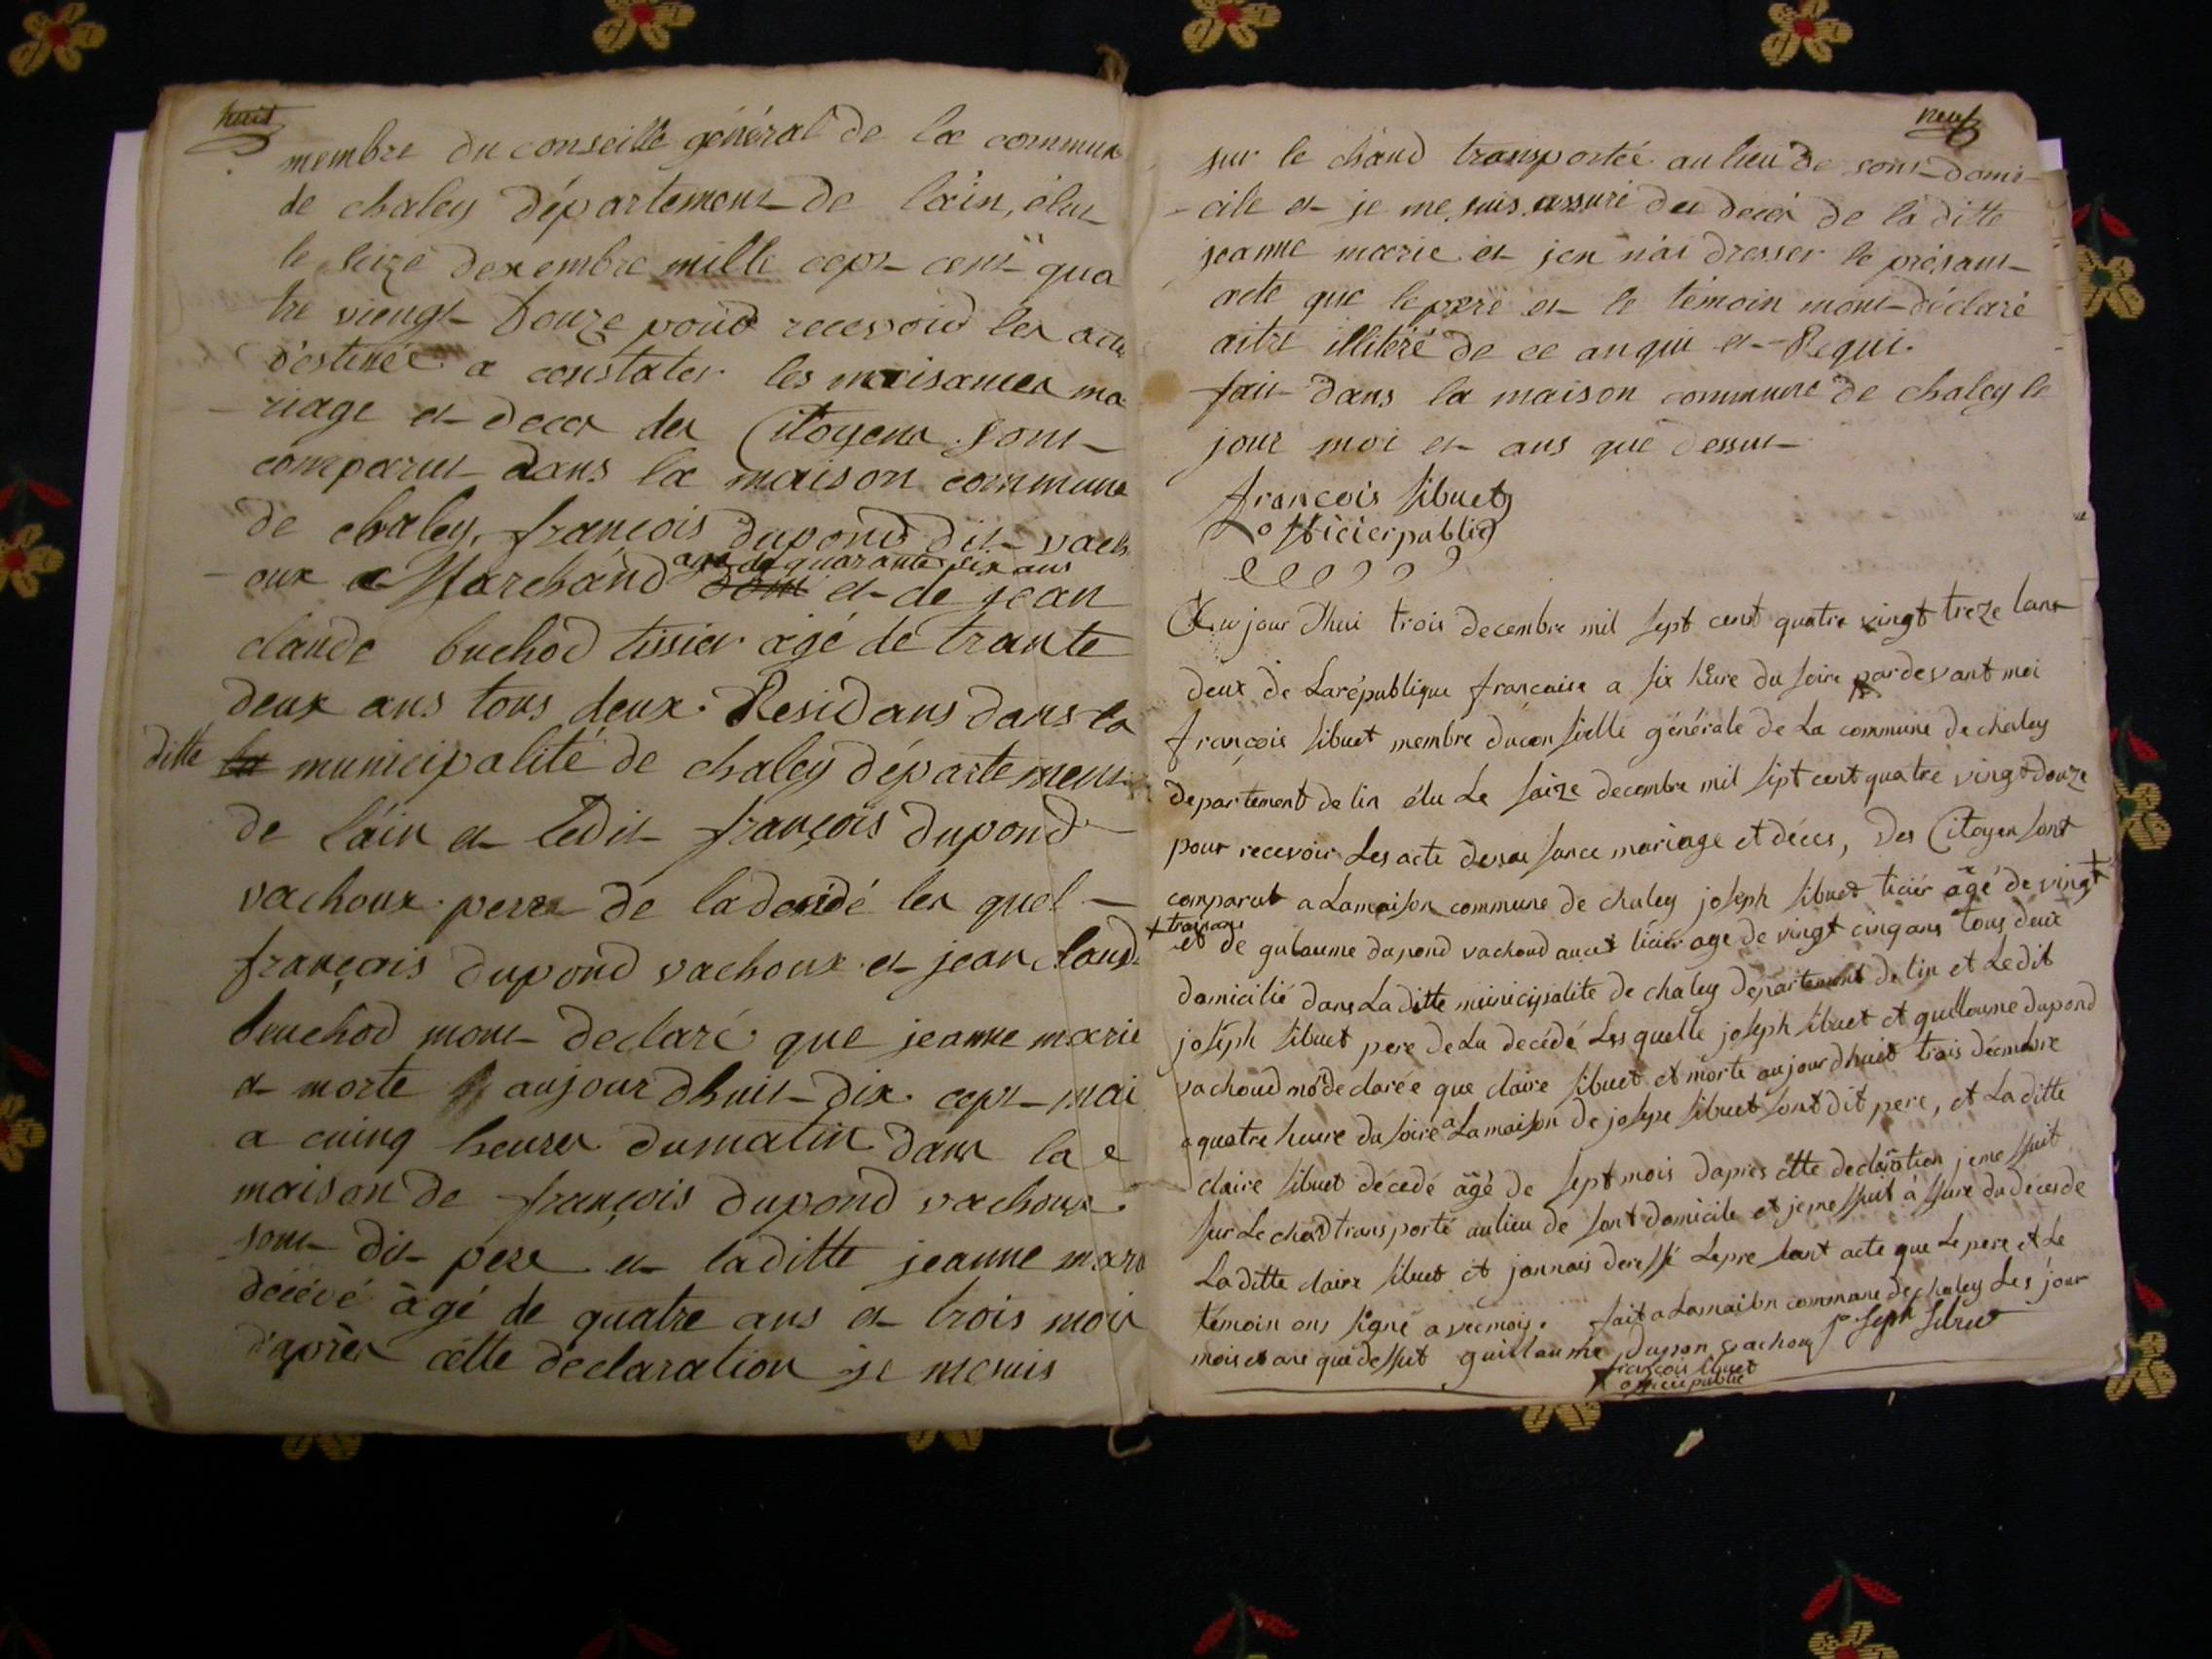 huit
membre du conseille général de la commune
de chaley département de lain, élut
le seize desembre mille cept cent qua
tre viengt douze pour recevoir les acte
destinée a constater les naisances ma
riage et deces des Citoyens sont
comparut dans la maison commune
de chaley, françois dupond dit vach
oux Marchand agé de quarante six ans et de jean
claude buchod tissier agé de trante
deux ans tous deux Residans dans la
ditte municipalité de chaley département
de lain et ledit françois dupond
vachoux perre de la décédé les quel
françois dupond vachoux et jean claude
buchod mont declaré que jeanne marie
et morte aujourdhuit dix cept mai
a cuinq heures du matin dans la
maison de françois dupond vachoux
sont dit pere et laditte jeanne marie
décévé âgé de quatre ans et trois mois
d'après cétte déclaration je me suis
neuf
sur le chaud transportéé au lieu de sont domi
cile et je me suis assuré du decés de la ditte
jeanne marie et jen nai dresser le présant
acte que le pere et le témoin mont déclaré
aitre illitéré de ce anqui et Requi.
fait dans la maison commune de chaley le
jour moi et ans que dessut
françois sibuet
officier public
Au jour dhui trois decembre mil sept cent quatre vingt treze lant
deux de La république francaise a six heure du soire par devant moi
françois sibuet membre du conseille générale de La commune de chaley
departement de lin élu Le saize decembre mil sept cent quatre vingt douze
pour recevoir Les acte denaissance mariage et déces, des Citoyen sont
comparut a Lamaison commune de chaley joseph sibuet ticier âgé de vingt +
+ troisans
et de gulaume dupond vachoud aucit ticier age de vingt cinq ans tous deux
domicilié dans La ditte municipalite de chaley departement de lin et Ledit
joseph sibuet pere de La decédé Les quelle joseph sibuet et guillaume dupond
vachoud mo declarée que claire sibuet et morte aujourdhuit trois décembre
a quatre heure du soire a Lamaison de josepe sibuet sont dit pere, et La ditte
claire sibuet décedé âgé de sept mois daprès cette declaration jeme suit
sur Le chaud transporté aulieu de sont domicile et jeme suit assure du déces de
La ditte claire sibuet et jannais deressé Le pre sant acte que Le pere et Le
témoin ons signé avecmois. fait a Lamaison commune de chaley Les jour
mois et ans que dessut guillaume dupon vachouz joseph sibuet
françois sibuet
officier public